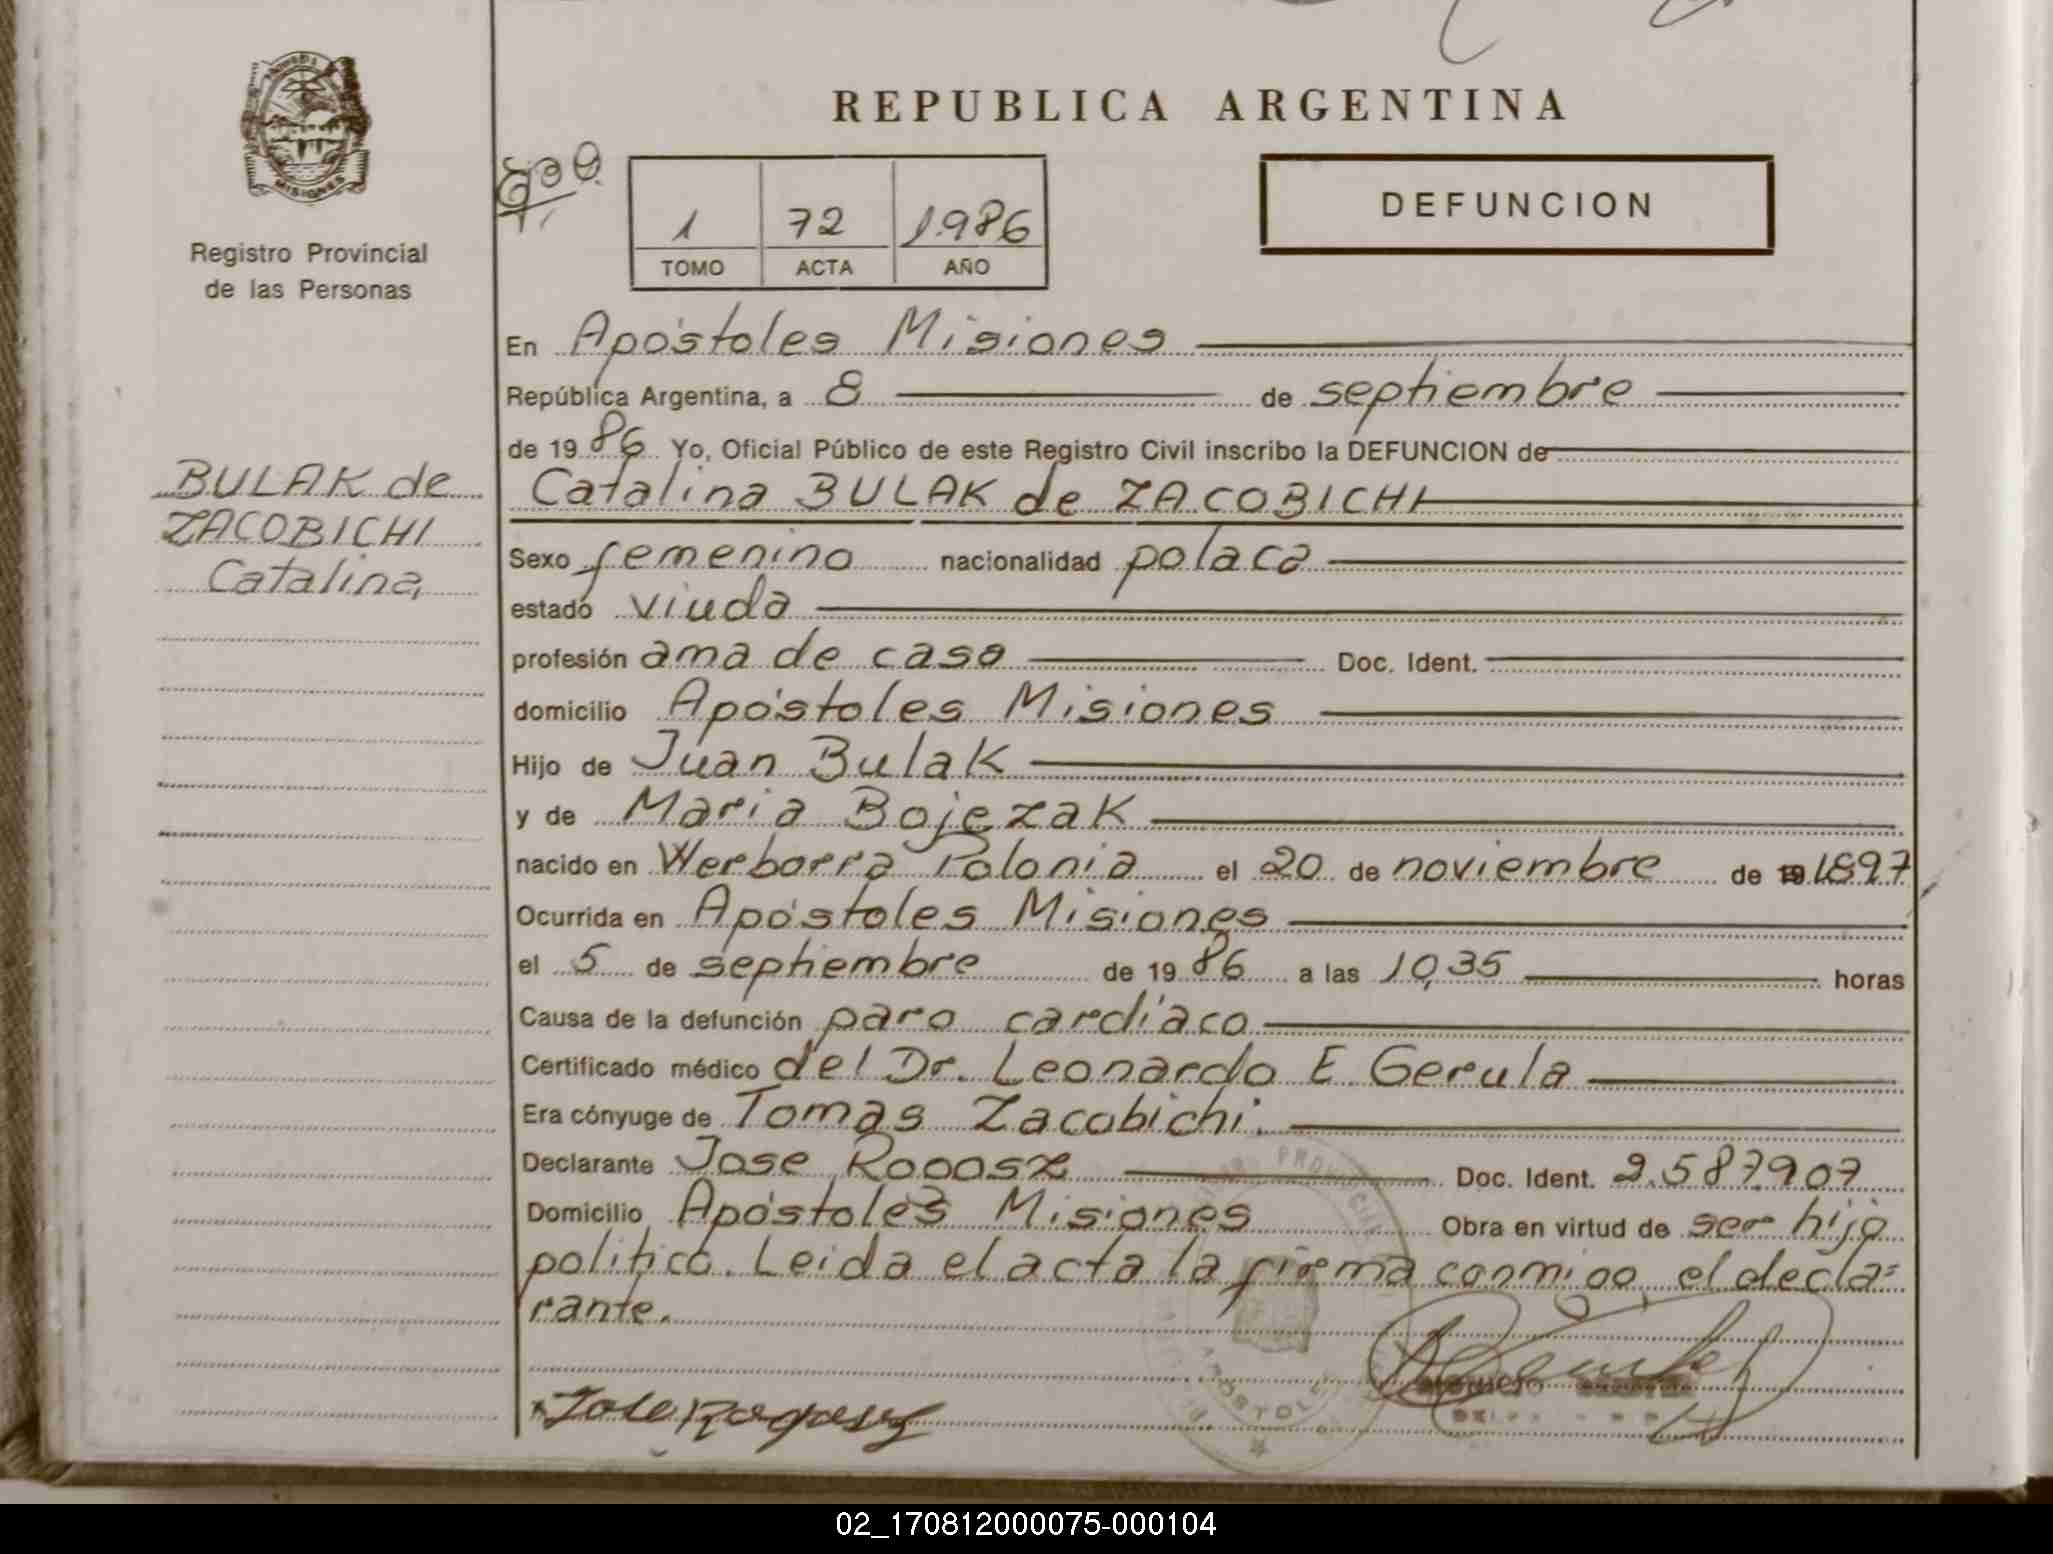 REPUBLICA ARGENTINA
MISIONES
Registro Provincial
de las Personas
1 72 1986
TOMO ACTA AÑO
DEFUNCION
En Apóstoles Misiones
República Argentina, a 8 de septiembre
de 1986 Yo, Oficial Público de este Registro Civil inscribo la DEFUNCION de
BULAK de
ZACOBICHI
Catalina
Catalina BULAK de ZACOBICHI
Sexo femenino nacionalidad polaca
estado viuda
profesión ama de casa Doc. Ident.
domicilio Apóstoles Misiones
Hijo de Juan Bulak
y de Maria Bojezak
nacido en Werborra Polonia el 20 de noviembre de 19 1897
Ocurrida en Apóstoles Misiones
el 5 de septiembre de 1986 a las 10,35 horas
Causa de la defunción paro cardíaco
Certificado médico del Dr. Leonardo E Gerula
Era cónyuge de Tomas Zacobichi.
Declarante Jose Rogosz Doc. Ident. 2.587.907
Domicilio Apóstoles Misiones Obra en virtud de ser hijo
politico. Leida el acta la firma conmigo el decla=
rante.
APOSTOLES
02_170812000075-000104